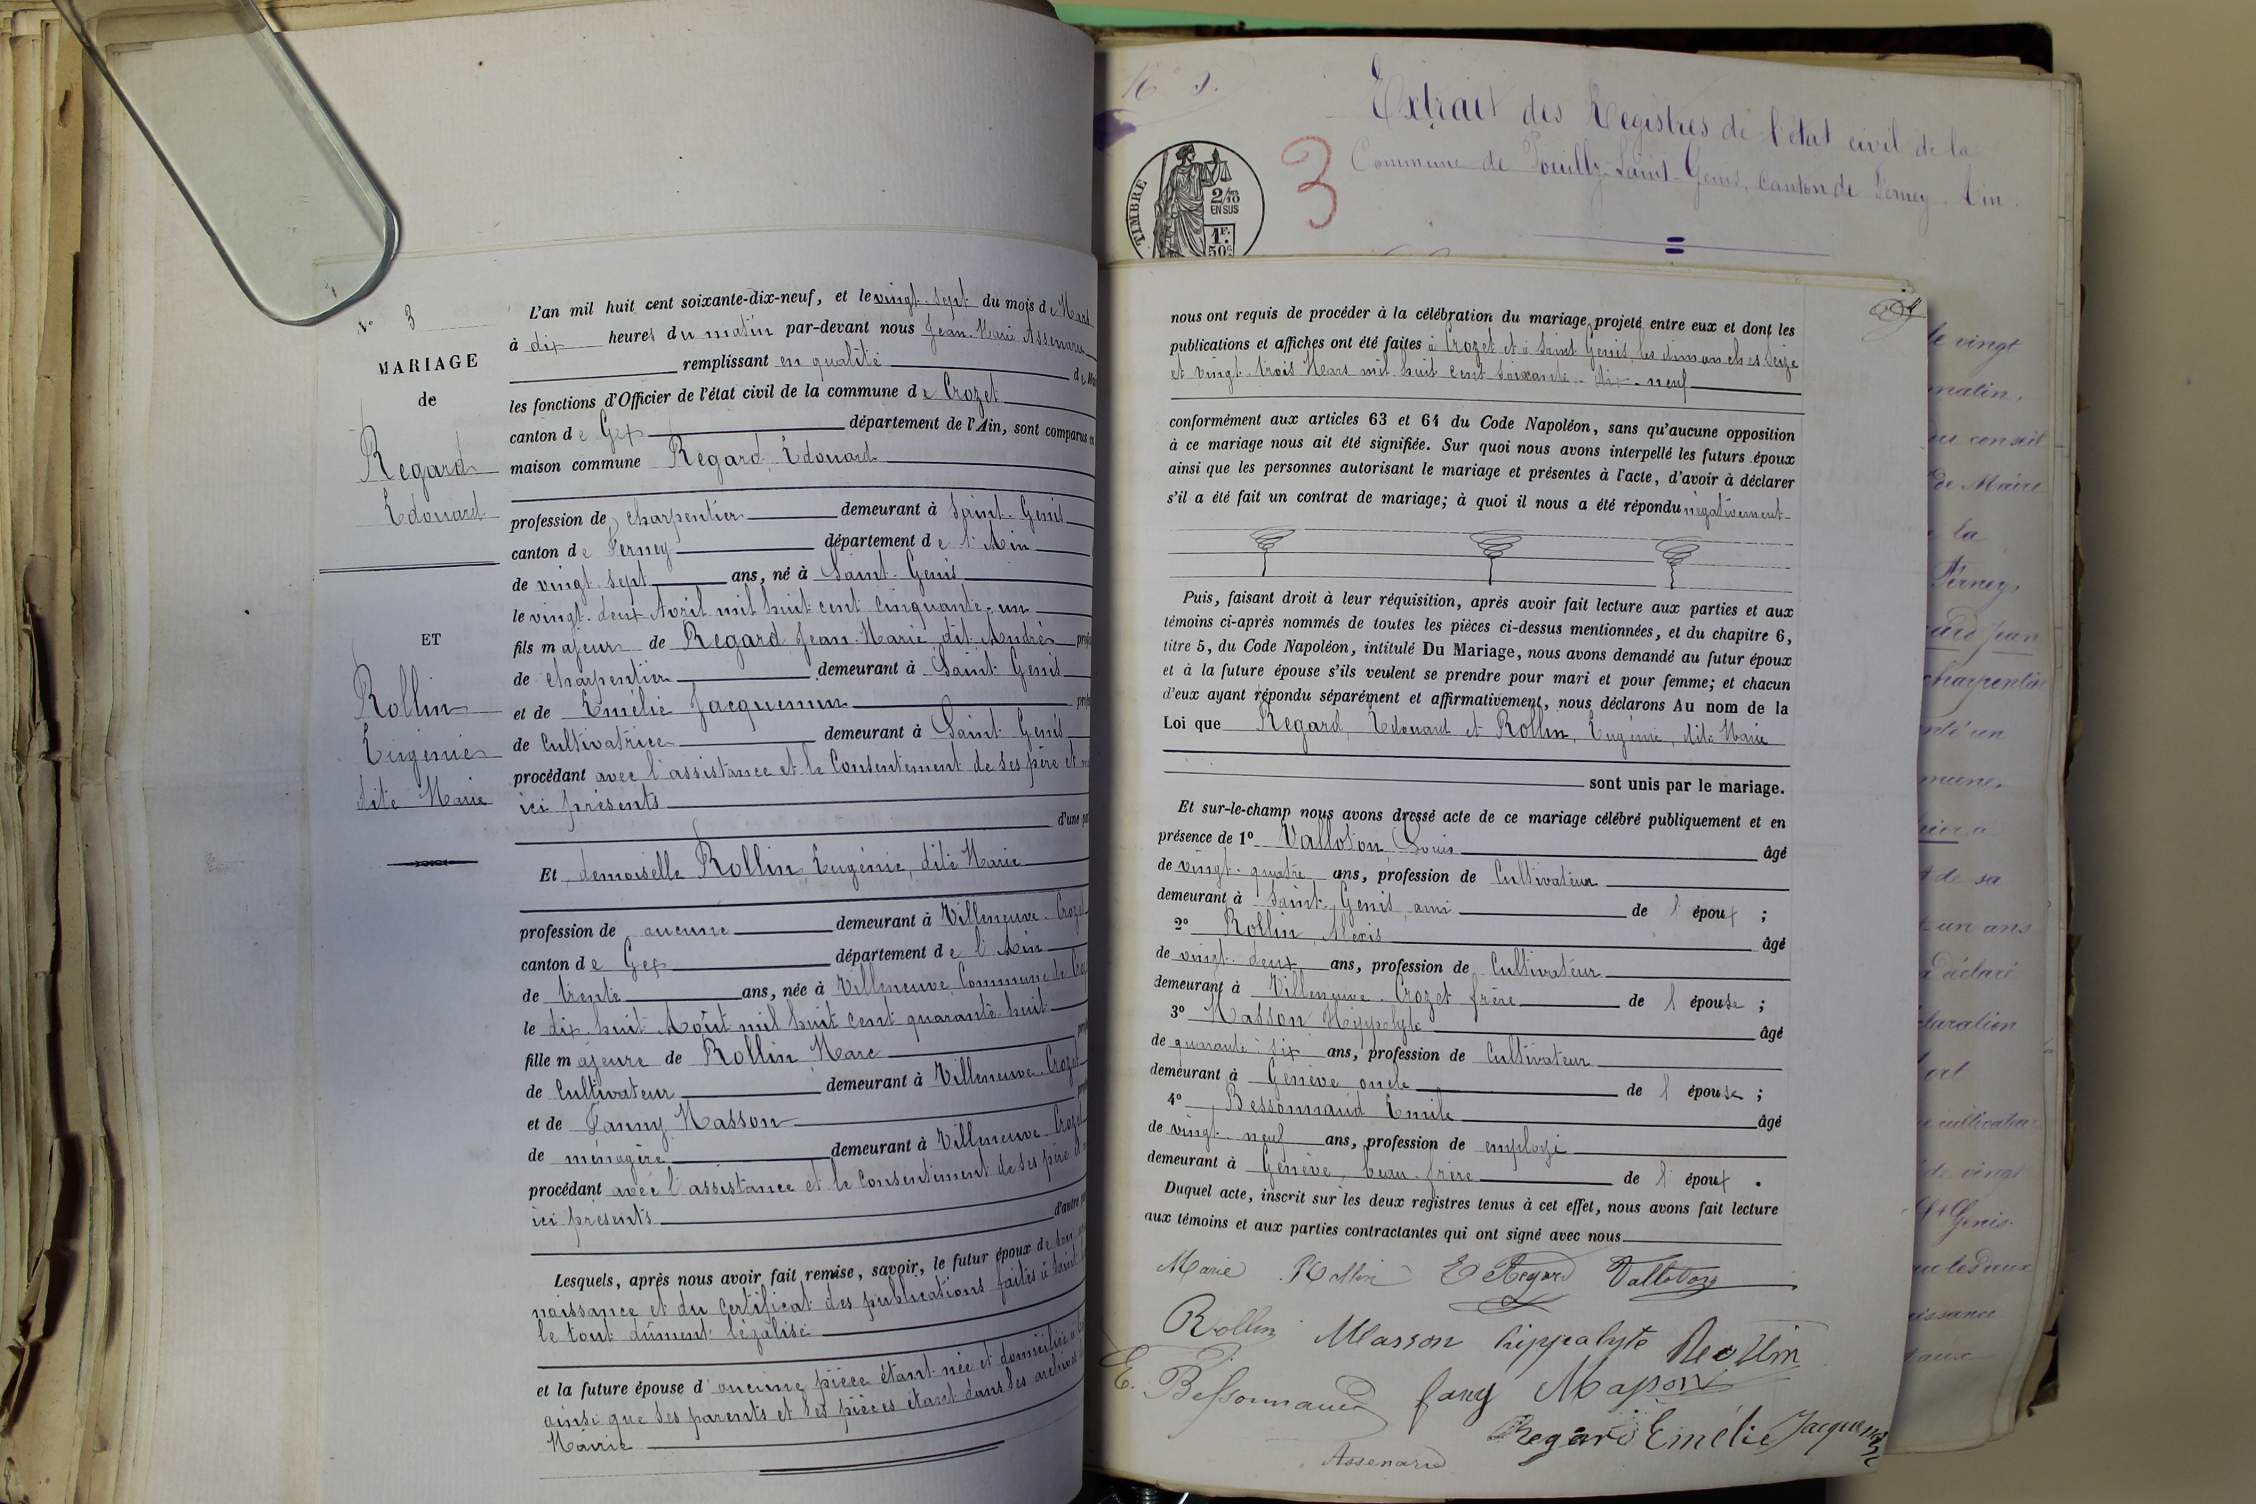 N° 3
MARIAGE
de
Regard
Edouard
ET
Rollin
Eugénie
dite Marie
L'an mil huit cent soixante-dix-neuf, et le vingt-sept du mois de Mars
à dix heures du matin par-devant nous Jean-Marie Assenare
remplissant en qualité de
les fonctions d'Officier de l'état civil de la commune de Crozet
canton de Gex département de l'Ain, sont comparus en
maison commune Regard, Edouard
profession de charpentier demeurant à Saint-Genis
canton de Ferney département de l'Ain
de vingt-sept ans, né à Saint-Genis
le vingt-deux Avril mil huit cent cinquante-un
fils majeur de Regard Jean-Marie dit André
de charpentier demeurant à Saint-Genis
et de Emélie Jacquemin
de Cultivatrice demeurant à Saint-Genis
procédant avec l'assistance et le Consentement de ses père et
ici présents
d'une
Et demoiselle Rollin, Eugénie, dite Marie
profession de aucune demeurant à Villeneuve-Crozet
canton de Gex département de l'Ain
de trente ans, née à Villeneuve Commune de
le dix-huit Août mil huit cent quarante-huit
fille majeure de Rollin Marc
de Cultivateur demeurant à Villeneuve-Crozet
et de Fanny Masson
de ménagère demeurant à Villeneuve-Crozet
procédant avec l'assistance et le Consentement de ses père
ici présents
d'autre
Lesquels, après nous avoir fait remise, savoir, le futur époux de son
naissance et du Certificat des publications faites à Saint
le tout dûment légalisé
et la future épouse d'aucune pièce étant née et domiciliée à
ainsi que ses parents et ses pièces étant dans les archives
Mairie
Extrait des Registres de l'état civil de la
Commune de Pouilly-Saint-Genis, Canton de Ferney. Ain
TIMBRE
2/10
EN SUS
1F.
50c
3
nous ont requis de procéder à la célébration du mariage projeté entre eux et dont les
publications et affiches ont été faites à Crozet et à Saint Genis les dimanches Seize
et vingt-trois Mars mil huit cent soixante-dix-neuf
conformément aux articles 63 et 64 du Code Napoléon, sans qu'aucune opposition
à ce mariage nous ait été signifiée. Sur quoi nous avons interpellé les futurs époux
ainsi que les personnes autorisant le mariage et présentes à l'acte, d'avoir à déclarer
s'il a été fait un contrat de mariage; à quoi il nous a été répondu négativement
Puis, faisant droit à leur réquisition, après avoir fait lecture aux parties et aux
témoins ci-après nommés de toutes les pièces ci-dessus mentionnées, et du chapitre 6,
titre 5, du Code Napoléon, intitulé Du Mariage, nous avons demandé au futur époux
et à la future épouse s'ils veulent se prendre pour mari et pour femme; et chacun
d'eux ayant répondu séparément et affirmativement, nous déclarons Au nom de la
Loi que Regard, Edouard et Rollin, Eugénie, dite Marie
sont unis par le mariage.
Et sur-le-champ nous avons dressé acte de ce mariage célébré publiquement et en
présence de 1° Valloton Louis âgé
de vingt-quatre ans, profession de Cultivateur
demeurant à Saint-Genis, ami de l'époux ;
2° Rollin, Alexis âgé
de vingt-deux ans, profession de Cultivateur
demeurant à Villeneuve-Crozet frère de l'épouse ;
3° Masson Hippolyte âgé
de quarante-six ans, profession de Cultivateur
demeurant à Genève oncle de l'épouse ;
4° Bessonnaud Emile âgé
de vingt-neuf ans, profession de employé
demeurant à Genève, beau-frère de l'époux .
Duquel acte, inscrit sur les deux registres tenus à cet effet, nous avons fait lecture
aux témoins et aux parties contractantes qui ont signé avec nous
Marie Rollin E Regard Valloton
Rollin Masson hippolyte Rollin
E. Bessonnaud fany Masson
Regard Emélie Jacquemin
Assenare
de vingt
matin,
au conseil
de Maire
la
Ferney,
Jean
charpentier
un
de sa
un ans
a déclaré
de vingt
St Genis.